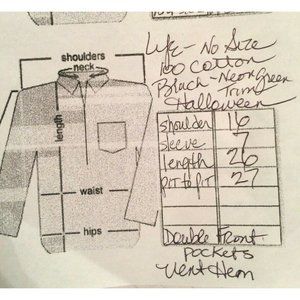 shoulders
neck
length
waist
hips
Life - No Size
100 Cotton
Black - Neon Green
Trim
Halloween
shoulder 16
sleeve 7
length 26
PIT to PIT 27
Double Front
pockets
Vent Hem